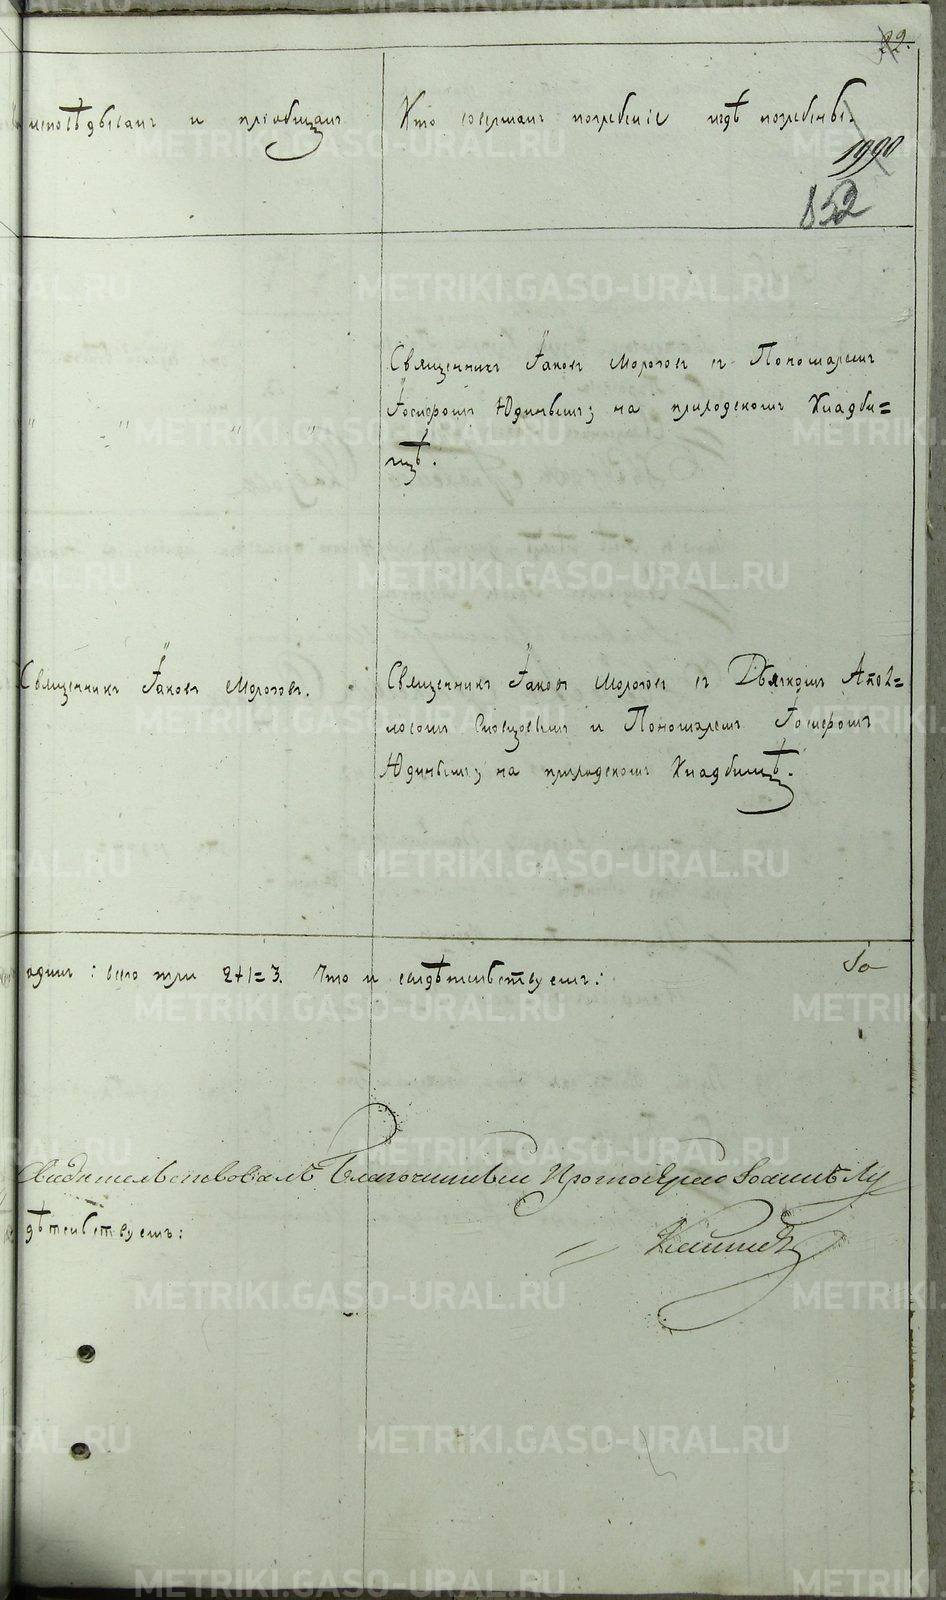 22.
исповѣдывалъ и пріобщалъ
Кто совершалъ погребеніе и гдѣ погребены.
1990
852
Священникъ Іаковъ Морозовъ съ Пономаремъ
Іосифомъ Юдинымъ; на приходскомъ Кладби=
щѣ.
" " " "
Священникъ Іаковъ Морозовъ.
Священникъ Іаковъ Морозовъ съ Дьячкомъ Апол=
лосомъ и Пономаремъ Іосифомъ
Юдинымъ; на приходскомъ Кладбищѣ.
одинъ: всего три 2+1=3. Что и свидѣтельствуемъ:
Свидѣтельствовалъ Благочинный Протоіерей Іоаннъ Лу
дѣтельствуемъ:
METRIKI.GASO-URAL.RU